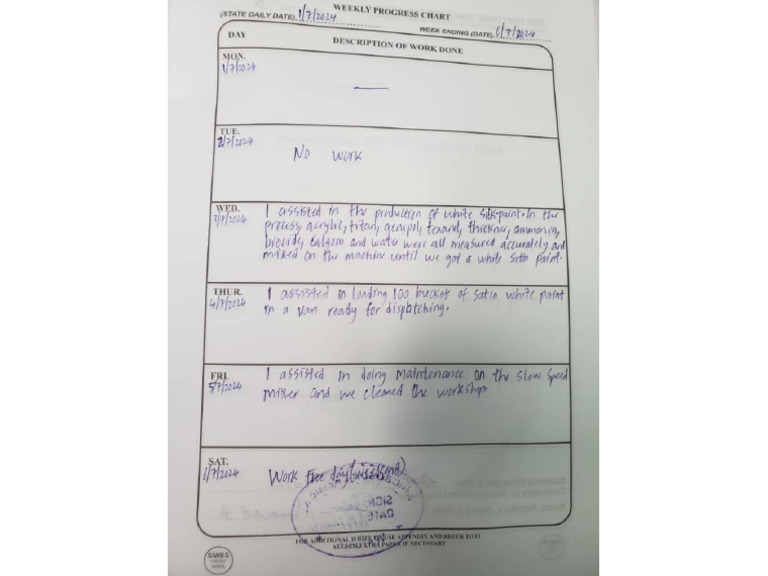 WEEKLY PROGRESS CHART
(STATE DAILY DATE). 1/7/2024 WEEK ENDING (DATE). 6/7/2024
DAY DESCRIPTION OF WORK DONE
MON.
1/7/2024 —
TUE.
2/7/2024 No work
WED. I assisted in the production of white silk paint. In the
3/7/2024 process, acrylic, titan, genipol, texanol, thickner, ammonia,
biocide, calgon and water were all measured accurately and
mixed on the machine until we got a white satin paint.
THUR. I assisted in loading 100 bucket of satin white paint
4/7/2024 in a van ready for dispatching.
FRI. I assisted in doing maintenance on the slow speed
5/7/2024 mixer and we cleaned the workshop
SAT.
6/7/2024 Work free day (weekend)
SIGN
DATE
FOR ADDITIONAL WRITE USE APPENDIX AND REFER TO IT
ALL EXTRA PAPER IF NECESSARY
SMES